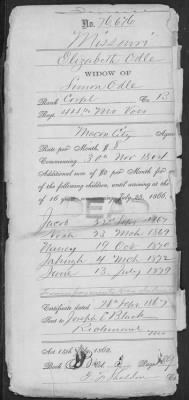 No. 76676
Missouri
Elizabeth Odle
WIDOW OF
Simon Odle
Rank Corpl Co. B
Regt 44th Mo Vols
Macon City Agency
Rate per Month $ 8
Commencing 30th Nov 1864
Additional sum of $2 per Month for each
of the following children, until arriving at the age
of 16 years, commencing July 25, 1866.
Jacob 1867
Noah 23 Mch 1869
Nancy 19 Oct 1870
4 Mch 1872
13 July 1879
Certificate dated 28th 1867
Sent to Joseph E Black
Richmond
Mo
Act 14th July, 1862.